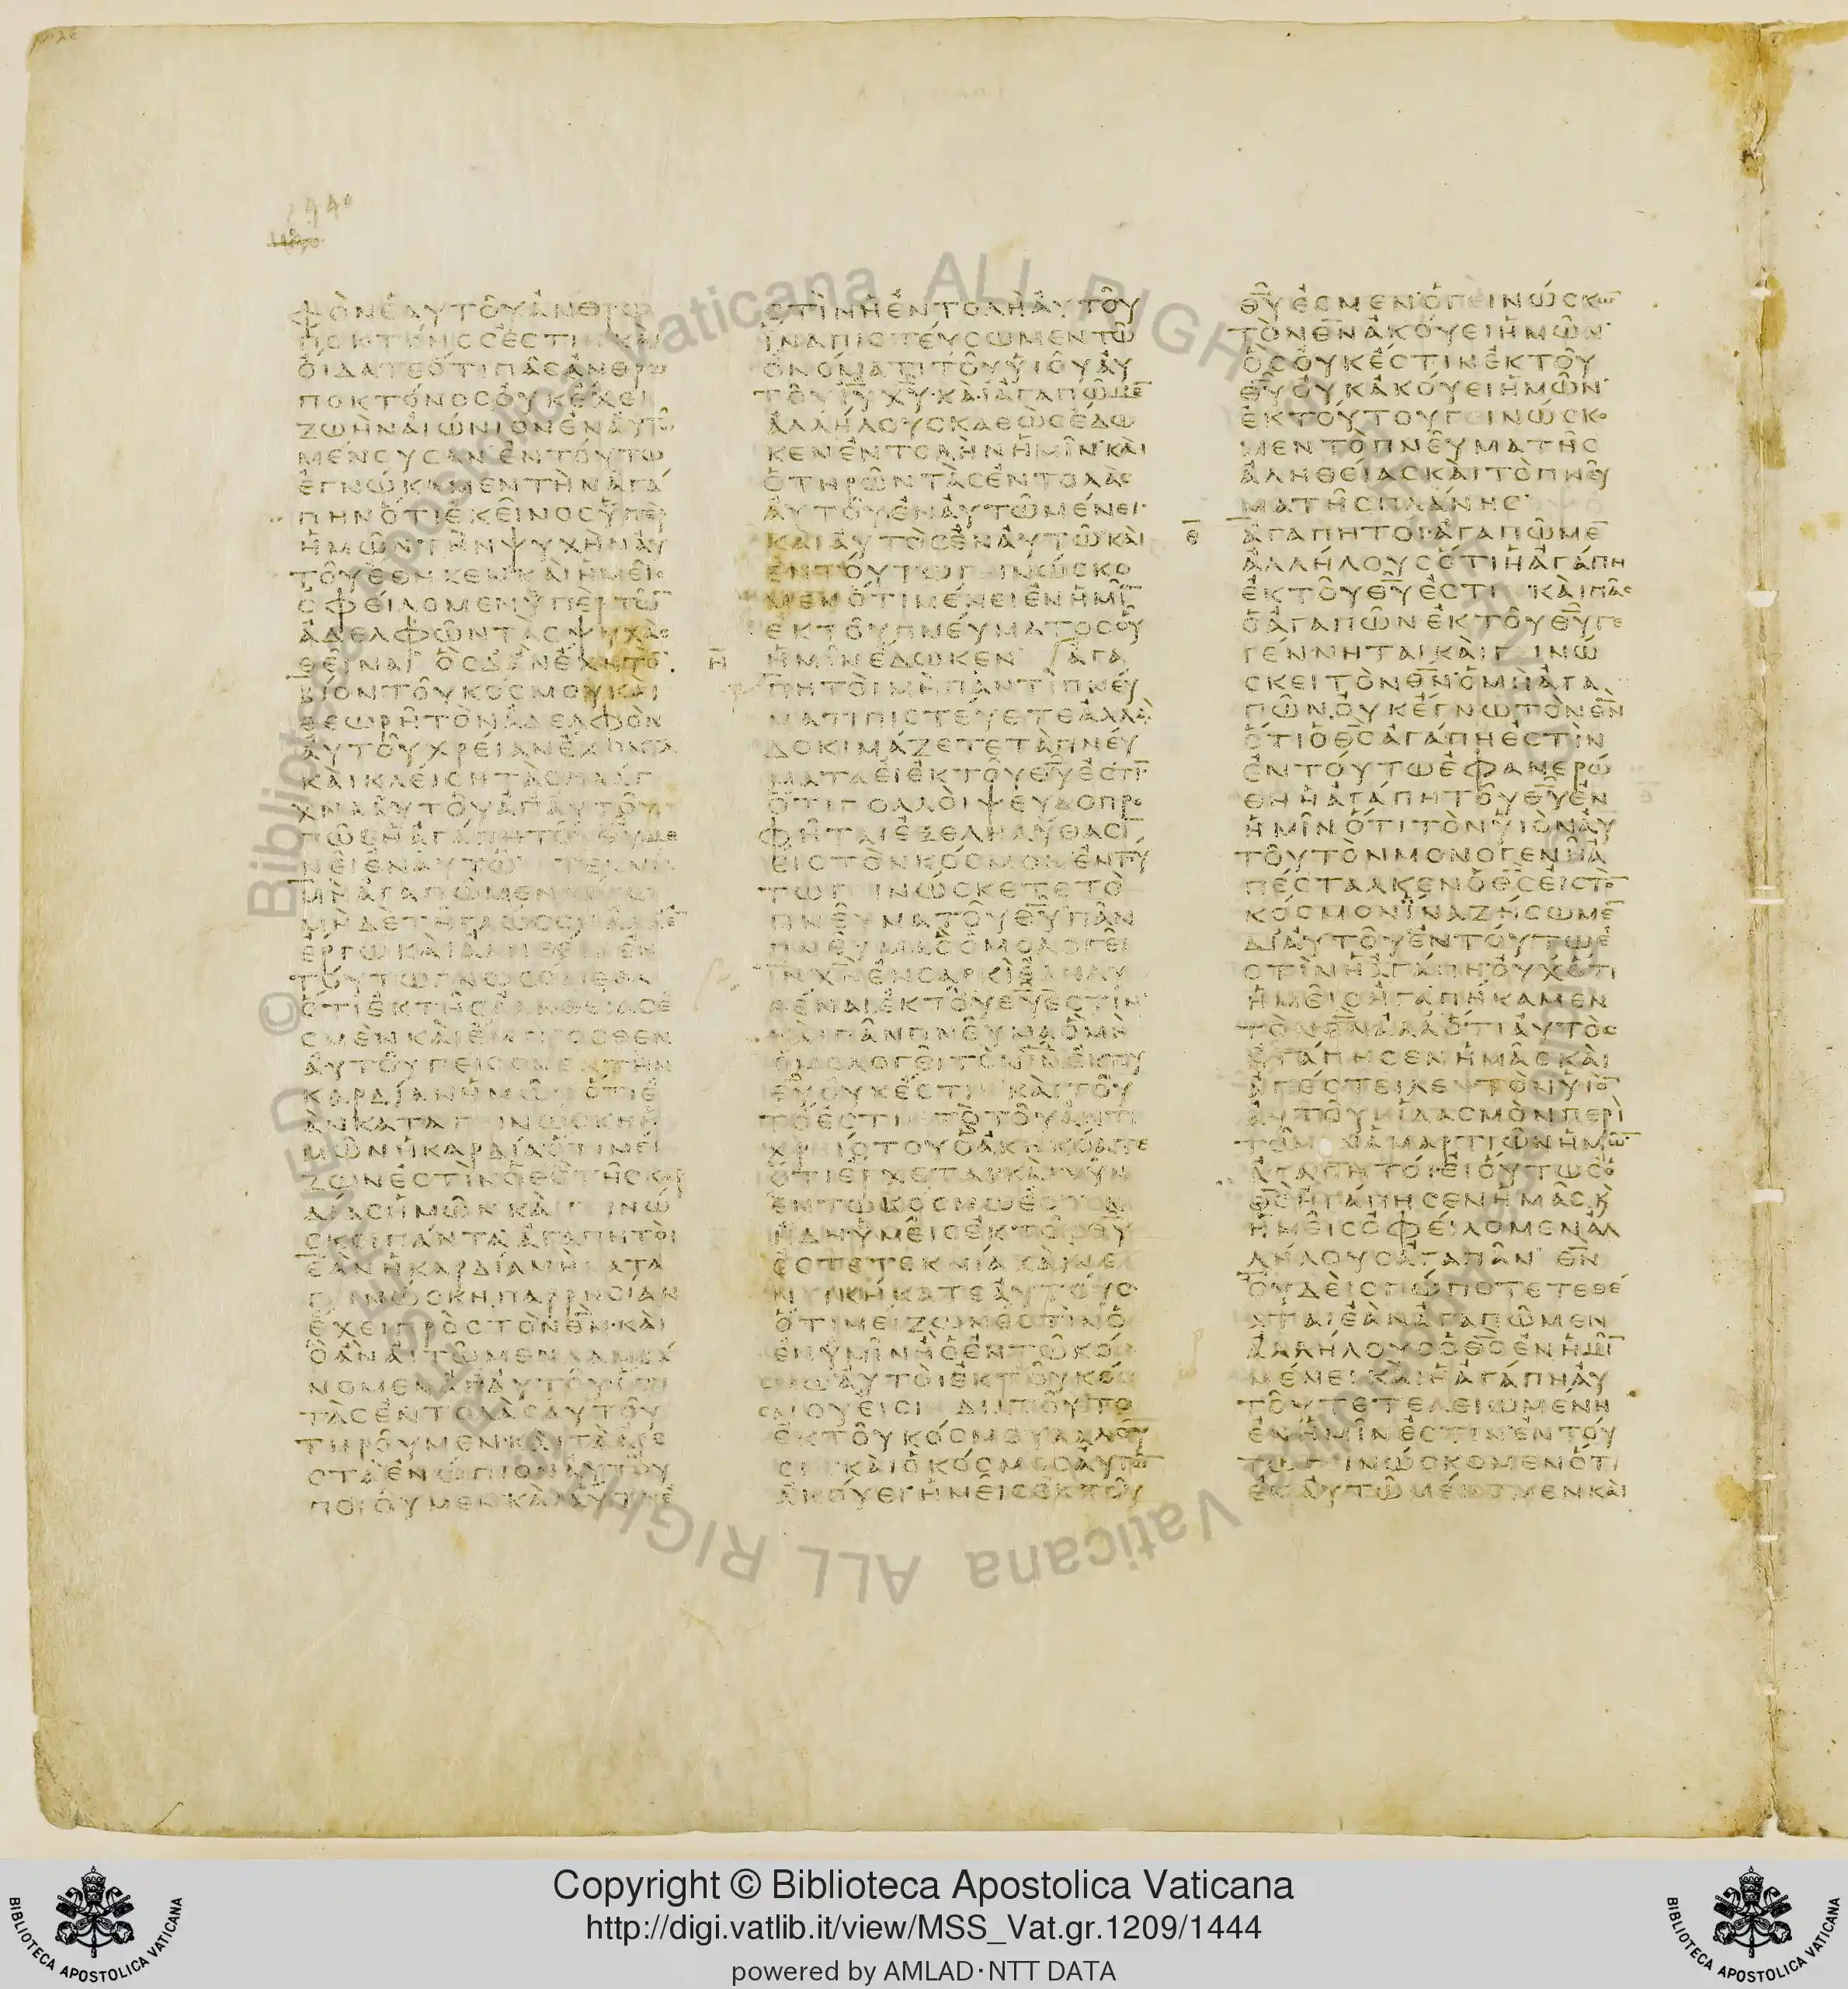 ΦΟΝΕΑΥΤΟΥΑΝΘΡΩ
ΠΟΚΤΟΝΟϹΕϹΤΙΝΚΑΙ
ΟΙΔΑΤΕΟΤΙΠΑϹΑΝΘΡΩ
ΠΟΚΤΟΝΟϹΟΥΚΕΧΕΙ
ΖΩΗΝΑΙΩΝΙΟΝΕΝΑΥΤΩ
ΜΕΝΟΥϹΑΝΕΝΤΟΥΤΩ
ΕΓΝΩΚΑΜΕΝΤΗΝΑΓΑ
ΠΗΝΟΤΙΕΚΕΙΝΟϹΥΠΕΡ
ΗΜΩΝΤΗΝΨΥΧΗΝΑΥ
ΤΟΥΕΘΗΚΕΝΚΑΙΗΜΕΙϹ
ΟΦΕΙΛΟΜΕΝΥΠΕΡΤΩ̅
ΑΔΕΛΦΩΝΤΑϹΨΥΧΑϹ
ΘΕΙΝΑΙ ΟϹΔΑΝΕΧΗΤΟ̅
ΒΙΟΝΤΟΥΚΟϹΜΟΥΚΑΙ
ΘΕΩΡΗΤΟΝΑΔΕΛΦΟΝ
ΑΥΤΟΥΧΡΕΙΑΝΕΧΟΝΤΑ
ΚΑΙΚΛΕΙϹΗΤΑϹΠΛΑΓ
ΧΝΑΑΥΤΟΥΑΠΑΥΤΟΥ
ΠΩϹΗΑΓΑΠΗΤΟΥΘ̅Υ̅ΜΕ
ΝΕΙΕΝΑΥΤΩ ΤΕΚΝΙΑ
ΜΗΑΓΑΠΩΜΕΝΛΟΓΩ
ΜΗΔΕΤΗΓΛΩϹϹΗΑΛΛΕ̅
ΕΡΓΩΚΑΙΑΛΗΘΕΙΑΕΝ
ΤΟΥΤΩΓΝΩϹΟΜΕΘΑ
ΟΤΙΕΚΤΗϹΑΛΗΘΕΙΑϹΕ
ϹΜΕΝΚΑΙΕΜΠΡΟϹΘΕΝ
ΑΥΤΟΥΠΕΙϹΟΜΕΝΤΗΝ
ΚΑΡΔΙΑΝΗΜΩΝΟΤΙΕ
ΑΝΚΑΤΑΓΕΙΝΩϹΚΗΗ
ΜΩΝΗΚΑΡΔΙΑΟΤΙΜΕΙ
ΖΩΝΕϹΤΙΝΟΘ̅Ϲ̅ΤΗϹΚΑΡ
ΔΙΑϹΗΜΩΝΚΑΙΓΕΙΝΩ
ϹΚΕΙΠΑΝΤΑΑΓΑΠΗΤΟΙ
ΕΑΝΗΚΑΡΔΙΑΜΗΚΑΤΑ
ΓΕΙΝΩϹΚΗΠΑΡΡΗϹΙΑΝ
ΕΧΕΙΠΡΟϹΤΟΝΘ̅Ν̅ΚΑΙ
ΟΑΝΑΙΤΩΜΕΝΛΑΜΒΑ
ΝΟΜΕΝΑΠΑΥΤΟΥΟΤΙ
ΤΑϹΕΝΤΟΛΑϹΑΥΤΟΥ
ΤΗΡΟΥΜΕΝΚΑΙΤΑΑΡΕ
ϹΤΑΕΝΩΠΙΟΝΑΥΤΟΥ
ΠΟΙΟΥΜΕΝΚΑΙΑΥΤΗΕ
ϹΤΙΝΗΕΝΤΟΛΗΑΥΤΟΥ
ΙΝΑΠΙϹΤΕΥϹΩΜΕΝΤΩ
ΟΝΟΜΑΤΙΤΟΥΥΙΟΥΑΥ
ΤΟΥΙ̅Υ̅Χ̅Υ̅ΚΑΙΑΓΑΠΩΜΕ̅
ΑΛΛΗΛΟΥϹΚΑΘΩϹΕΔΩ
ΚΕΝΕΝΤΟΛΗΝΗΜΙΝΚΑΙ
ΟΤΗΡΩΝΤΑϹΕΝΤΟΛΑϹ
ΑΥΤΟΥΕΝΑΥΤΩΜΕΝΕΙ
ΚΑΙΑΥΤΟϹΕΝΑΥΤΩΚΑΙ
ΕΝΤΟΥΤΩΓΕΙΝΩϹΚΟ
ΜΕΝΟΤΙΜΕΝΕΙΕΝΗΜΙ̅
ΕΚΤΟΥΠΝΕΥΜΑΤΟϹΟΥ
Η̅ ΗΜΙΝΕΔΩΚΕΝ ΑΓΑ
ΠΗΤΟΙΜΗΠΑΝΤΙΠΝΕΥ
ΜΑΤΙΠΙϹΤΕΥΕΤΕΑΛΛΑ
ΔΟΚΙΜΑΖΕΤΕΤΑΠΝΕΥ
ΜΑΤΑΕΙΕΚΤΟΥΘ̅Υ̅ΕϹΤΙ̅
ΟΤΙΠΟΛΛΟΙΨΕΥΔΟΠΡΟ
ΦΗΤΑΙΕΞΕΛΗΛΥΘΑϹΙ̅
ΕΙϹΤΟΝΚΟϹΜΟΝΕΝΤΟΥ
ΤΩΓΕΙΝΩϹΚΕΤΕΤΟ
ΠΝΕΥΜΑΤΟΥΘ̅Υ̅ΠΑΝ
ΠΝΕΥΜΑΟΟΜΟΛΟΓΕΙ
Ι̅Ν̅Χ̅Ν̅ΕΝϹΑΡΚΙΕΛΗΛΥ
ΘΕΝΑΙΕΚΤΟΥΘ̅Υ̅ΕϹΤΙΝ
ΚΑΙΠΑΝΠΝΕΥΜΑΟΜΗ
ΟΜΟΛΟΓΕΙΤΟΝΙ̅Ν̅ΕΚΤΟΥ
Θ̅Υ̅ΟΥΚΕϹΤΙΝΚΑΙΤΟΥ
ΤΟΕϹΤΙΝΤΟΤΟΥΑΝΤΙ
ΧΡΕΙϹΤΟΥΟΑΚΗΚΟΑΤΕ
ΟΤΙΕΡΧΕΤΑΙΚΑΙΝΥΝ
ΕΝΤΩΚΟϹΜΩΕϹΤΙΝ
ΗΔΗΥΜΕΙϹΕΚΤΟΥΘ̅Υ̅
ΕϹΤΕΤΕΚΝΙΑΚΑΙΝΕ
ΝΙΚΗΚΑΤΕΑΥΤΟΥϹ
ΟΤΙΜΕΙΖΩΝΕϹΤΙΝΟ
ΕΝΥΜΙΝΗΟΕΝΤΩΚΟ
ϹΜΩΑΥΤΟΙΕΚΤΟΥΚΟ
ϹΜΟΥΕΙϹΙΝΔΙΑΤΟΥΤΟ
ΕΚΤΟΥΚΟϹΜΟΥΛΑΛΟΥ
ϹΙΝΚΑΙΟΚΟϹΜΟϹΑΥΤΩ̅
ΑΚΟΥΕΙΗΜΕΙϹΕΚΤΟΥ
Θ̅Υ̅ΕϹΜΕΝΟΓΕΙΝΩϹΚΩ̅
ΤΟΝΘ̅Ν̅ΑΚΟΥΕΙΗΜΩΝ
ΟϹΟΥΚΕϹΤΙΝΕΚΤΟΥ
Θ̅Υ̅ΟΥΚΑΚΟΥΕΙΗΜΩΝ
ΕΚΤΟΥΤΟΥΓΕΙΝΩϹΚΟ
ΜΕΝΤΟΠΝΕΥΜΑΤΗϹ
ΑΛΗΘΕΙΑϹΚΑΙΤΟΠΝΕΥ
ΜΑΤΗϹΠΛΑΝΗϹ
Θ̅ ΑΓΑΠΗΤΟΙΑΓΑΠΩΜΕ̅
ΑΛΛΗΛΟΥϹΟΤΙΗΑΓΑΠΗ
ΕΚΤΟΥΘ̅Υ̅ΕϹΤΙΝΚΑΙΠΑϹ
ΟΑΓΑΠΩΝΕΚΤΟΥΘ̅Υ̅ΓΕ
ΓΕΝΝΗΤΑΙΚΑΙΓΕΙΝΩ
ϹΚΕΙΤΟΝΘ̅Ν̅ΟΜΗΑΓΑ
ΠΩΝΟΥΚΕΓΝΩΤΟΝΘ̅Ν̅
ΟΤΙΟΘ̅Ϲ̅ΑΓΑΠΗΕϹΤΙΝ
ΕΝΤΟΥΤΩΕΦΑΝΕΡΩ
ΘΗΗΑΓΑΠΗΤΟΥΘ̅Υ̅ΕΝ
ΗΜΙΝΟΤΙΤΟΝΥΙΟΝΑΥ
ΤΟΥΤΟΝΜΟΝΟΓΕΝΗΑ
ΠΕϹΤΑΛΚΕΝΟΘ̅Ϲ̅ΕΙϹΤΟ̅
ΚΟϹΜΟΝΙΝΑΖΗϹΩΜΕ̅
ΔΙΑΥΤΟΥΕΝΤΟΥΤΩΕ
ϹΤΙΝΗΑΓΑΠΗΟΥΧΟΤΙ
ΗΜΕΙϹΗΓΑΠΗΚΑΜΕΝ
ΤΟΝΘ̅Ν̅ΑΛΛΟΤΙΑΥΤΟϹ
ΗΓΑΠΗϹΕΝΗΜΑϹΚΑΙ
ΑΠΕϹΤΕΙΛΕΝΤΟΝΥΙΟ̅
ΑΥΤΟΥΙΛΑϹΜΟΝΠΕΡΙ
ΤΩΝΑΜΑΡΤΙΩΝΗΜΩ̅
ΑΓΑΠΗΤΟΙΕΙΟΥΤΩϹΟ
Θ̅Ϲ̅ΗΓΑΠΗϹΕΝΗΜΑϹΚ
ΗΜΕΙϹΟΦΕΙΛΟΜΕΝΑΛ
ΛΗΛΟΥϹΑΓΑΠΑΝ Θ̅Ν̅
ΟΥΔΕΙϹΠΩΠΟΤΕΤΕΘΕ
ΑΤΑΙΕΑΝΑΓΑΠΩΜΕΝ
ΑΛΛΗΛΟΥϹΟΘ̅Ϲ̅ΕΝΗΜΙ̅
ΜΕΝΕΙΚΑΙΗΑΓΑΠΗΑΥ
ΤΟΥΤΕΤΕΛΕΙΩΜΕΝΗ
ΕΝΗΜΙΝΕϹΤΙΝΕΝΤΟΥ
ΤΩΓΕΙΝΩϹΚΟΜΕΝΟΤΙ
ΕΝΑΥΤΩΜΕΝΟΜΕΝΚΑΙ
Copyright © Biblioteca Apostolica Vaticana
http://digi.vatlib.it/view/MSS_Vat.gr.1209/1444
powered by AMLAD·NTT DATA
BIBLIOTECA APOSTOLICA VATICANA
BIBLIOTECA APOSTOLICA VATICANA